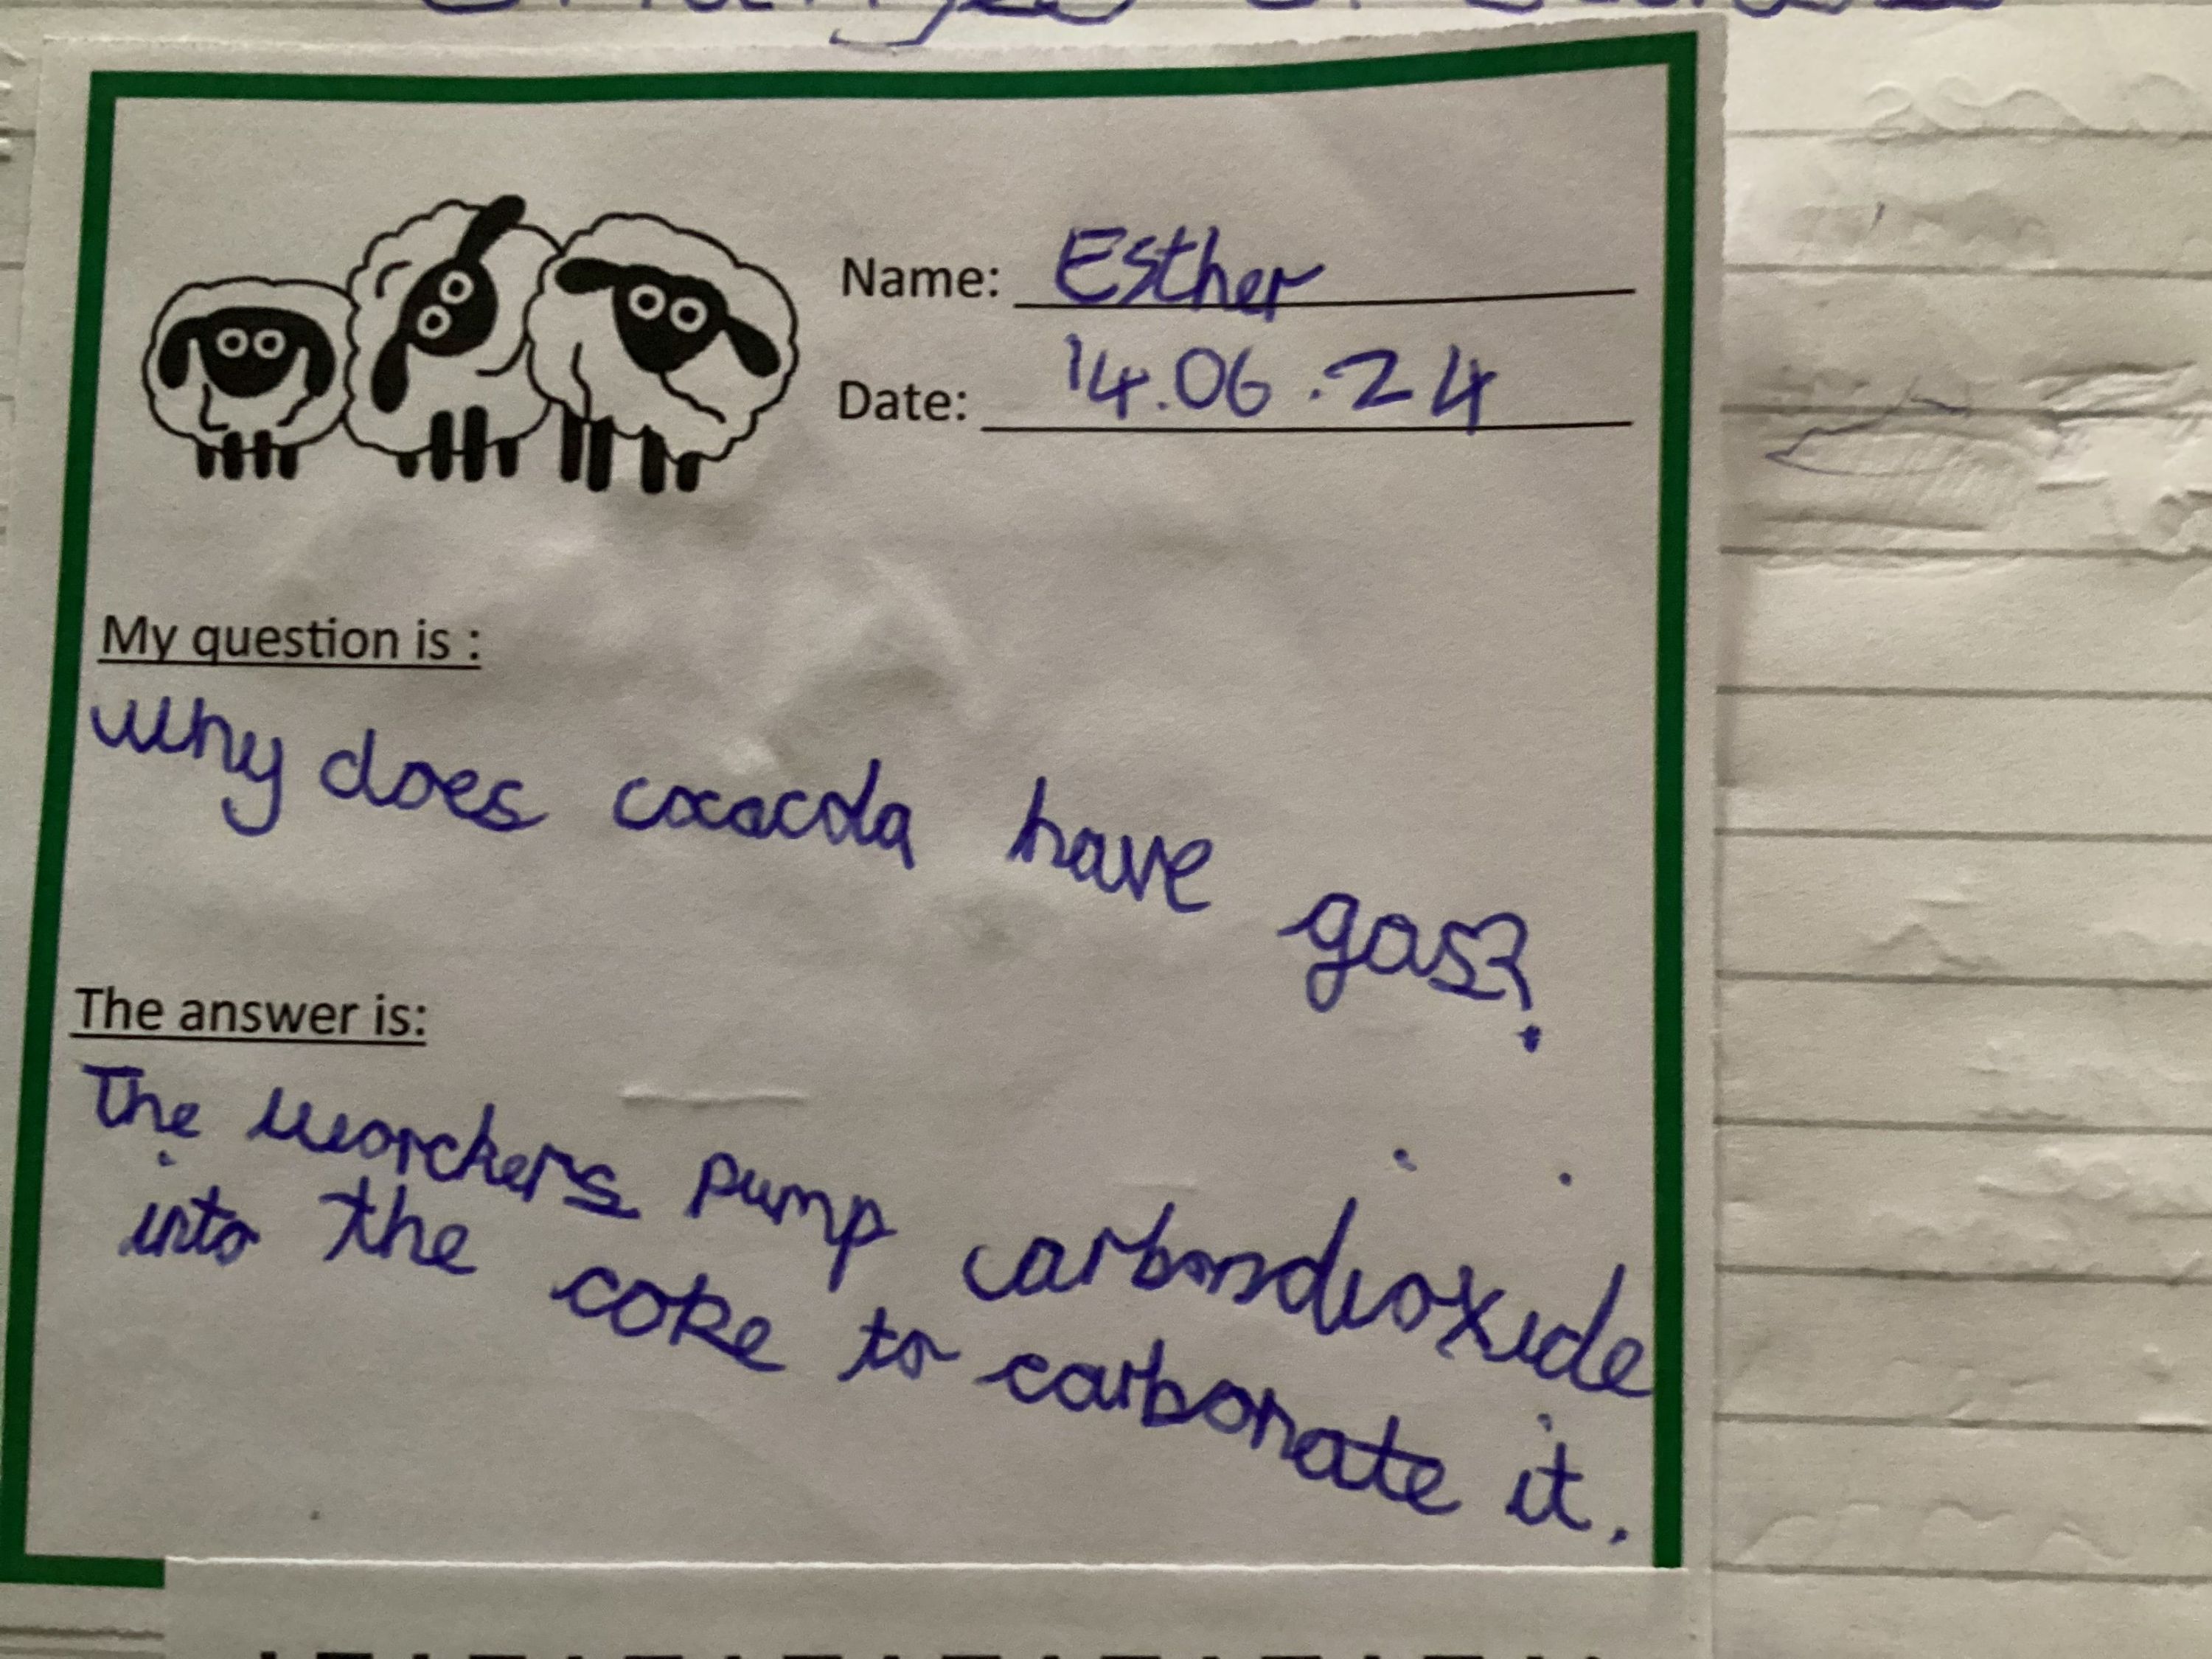 Name: Esther
Date: 14.06.24
My question is :
why does cocacola have gas?
The answer is:
The worckers pump carbondioxide
into the coke to carbonate it.